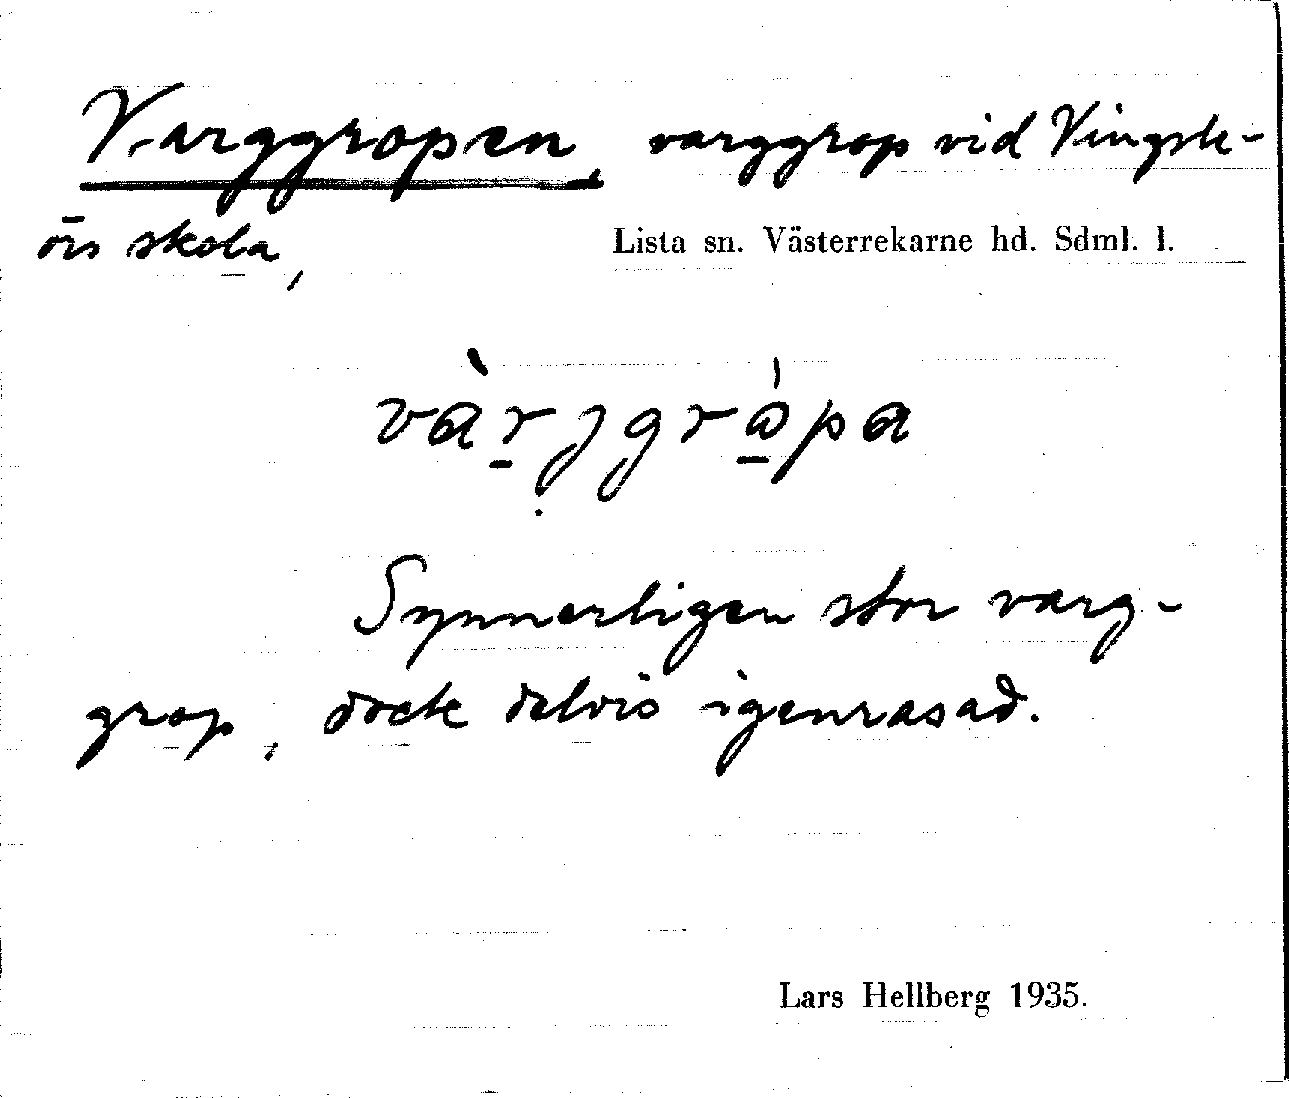 Varggropen, varggrop vid Vingsle-
örs skola,
Lista sn. Västerrekarne hd. Sdml. l.
vàrjgrɷ̀pa
Synnerligen stor varg-
grop, dock delvis igenrasad.
Lars Hellberg 1935.